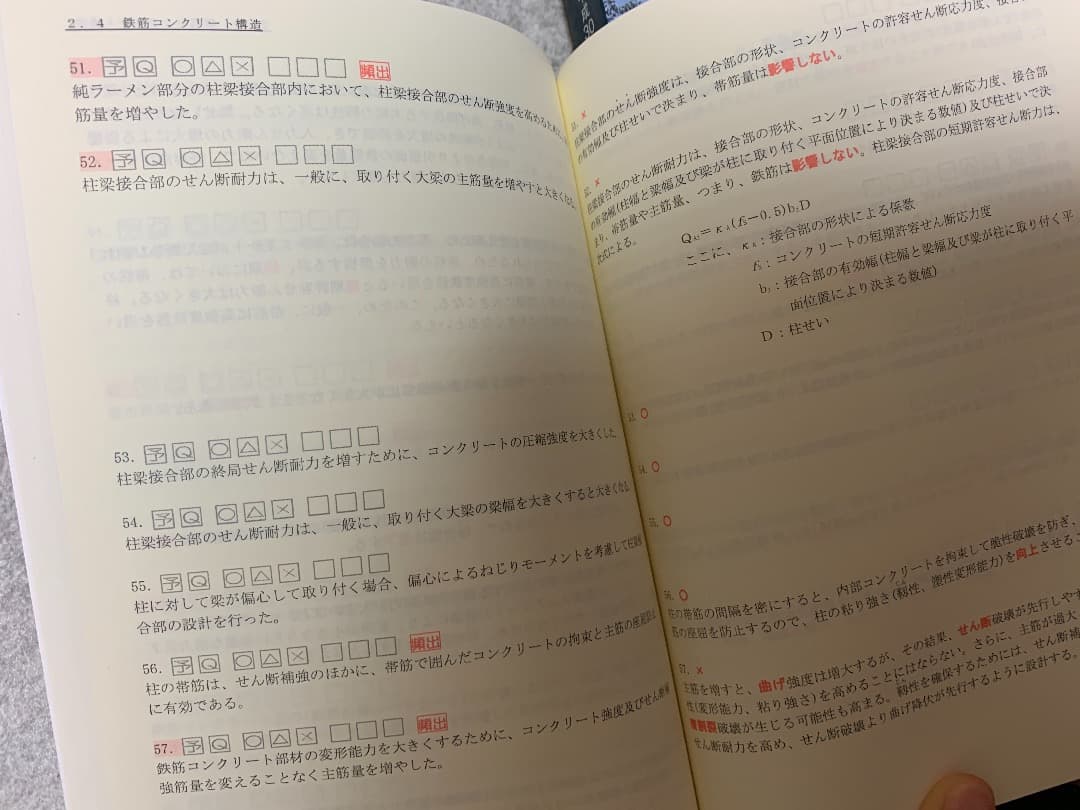 2.4 鉄筋コンクリート構造
51. 予 Q ○ △ × □ □ □ 頻出
純ラーメン部分の柱梁接合部内において、柱梁接合部のせん断強度を高めるために、
筋量を増やした。
52. 予 Q ○ △ × □ □ □
柱梁接合部のせん断耐力は、一般に、取り付く大梁の主筋量を増やすと大きくなる。
53. 予 Q ○ △ × □ □ □
柱梁接合部の終局せん断耐力を増すために、コンクリートの圧縮強度を大きくした
54. 予 Q ○ △ × □ □ □
柱梁接合部のせん断耐力は、一般に、取り付く大梁の梁幅を大きくすると大きくなる
55. 予 Q ○ △ × □ □ □
柱に対して梁が偏心して取り付く場合、偏心によるねじりモーメントを考慮して柱梁
合部の設計を行った。
56. 予 Q ○ △ × □ □ □ 頻出
柱の帯筋は、せん断補強のほかに、帯筋で囲んだコンクリートの拘束と主筋の座屈防止
に有効である。
57. 予 Q ○ △ × □ □ □ 頻出
鉄筋コンクリート部材の変形能力を大きくするために、コンクリート強度及びせん断補
強筋量を変えることなく主筋量を増やした。
成30
×
梁接合部のせん断強度は、接合部の形状、コンクリートの許容せん断応力度、接合
の有効幅及び柱せいで決まり、帯筋量は影響しない。
52. ×
梁接合部のせん断耐力は、接合部の形状、コンクリートの許容せん断応力度、接合部
の有効幅(柱幅と梁幅及び梁が柱に取り付く平面位置により決まる数値)及び柱せいで決
まり、帯筋量や主筋量、つまり、鉄筋は影響しない。柱梁接合部の短期許容せん断力は、
次式による。
ここに、κA：接合部の形状による係数
fs：コンクリートの短期許容せん断応力度
bj：接合部の有効幅(柱幅と梁幅及び梁が柱に取り付く平
面位置により決まる数値)
D：柱せい
○
54. ○
55. ○
56. ○
柱の帯筋の間隔を密にすると、内部コンクリートを拘束して脆性破壊を防ぎ、
筋の座屈を防止するので、柱の粘り強さ(靱性、塑性変形能力)を向上させるこ
57. ×
主筋を増すと、曲げ強度は増大するが、その結果、せん断破壊が先行しやす
性(変形能力、粘り強さ)を高めることにはならない。さらに、主筋が過大
破壊が生じる可能性も高まる。靱性を確保するためには、せん断補
せん断耐力を高め、せん断破壊より曲げ降伏が先行するように設計する。